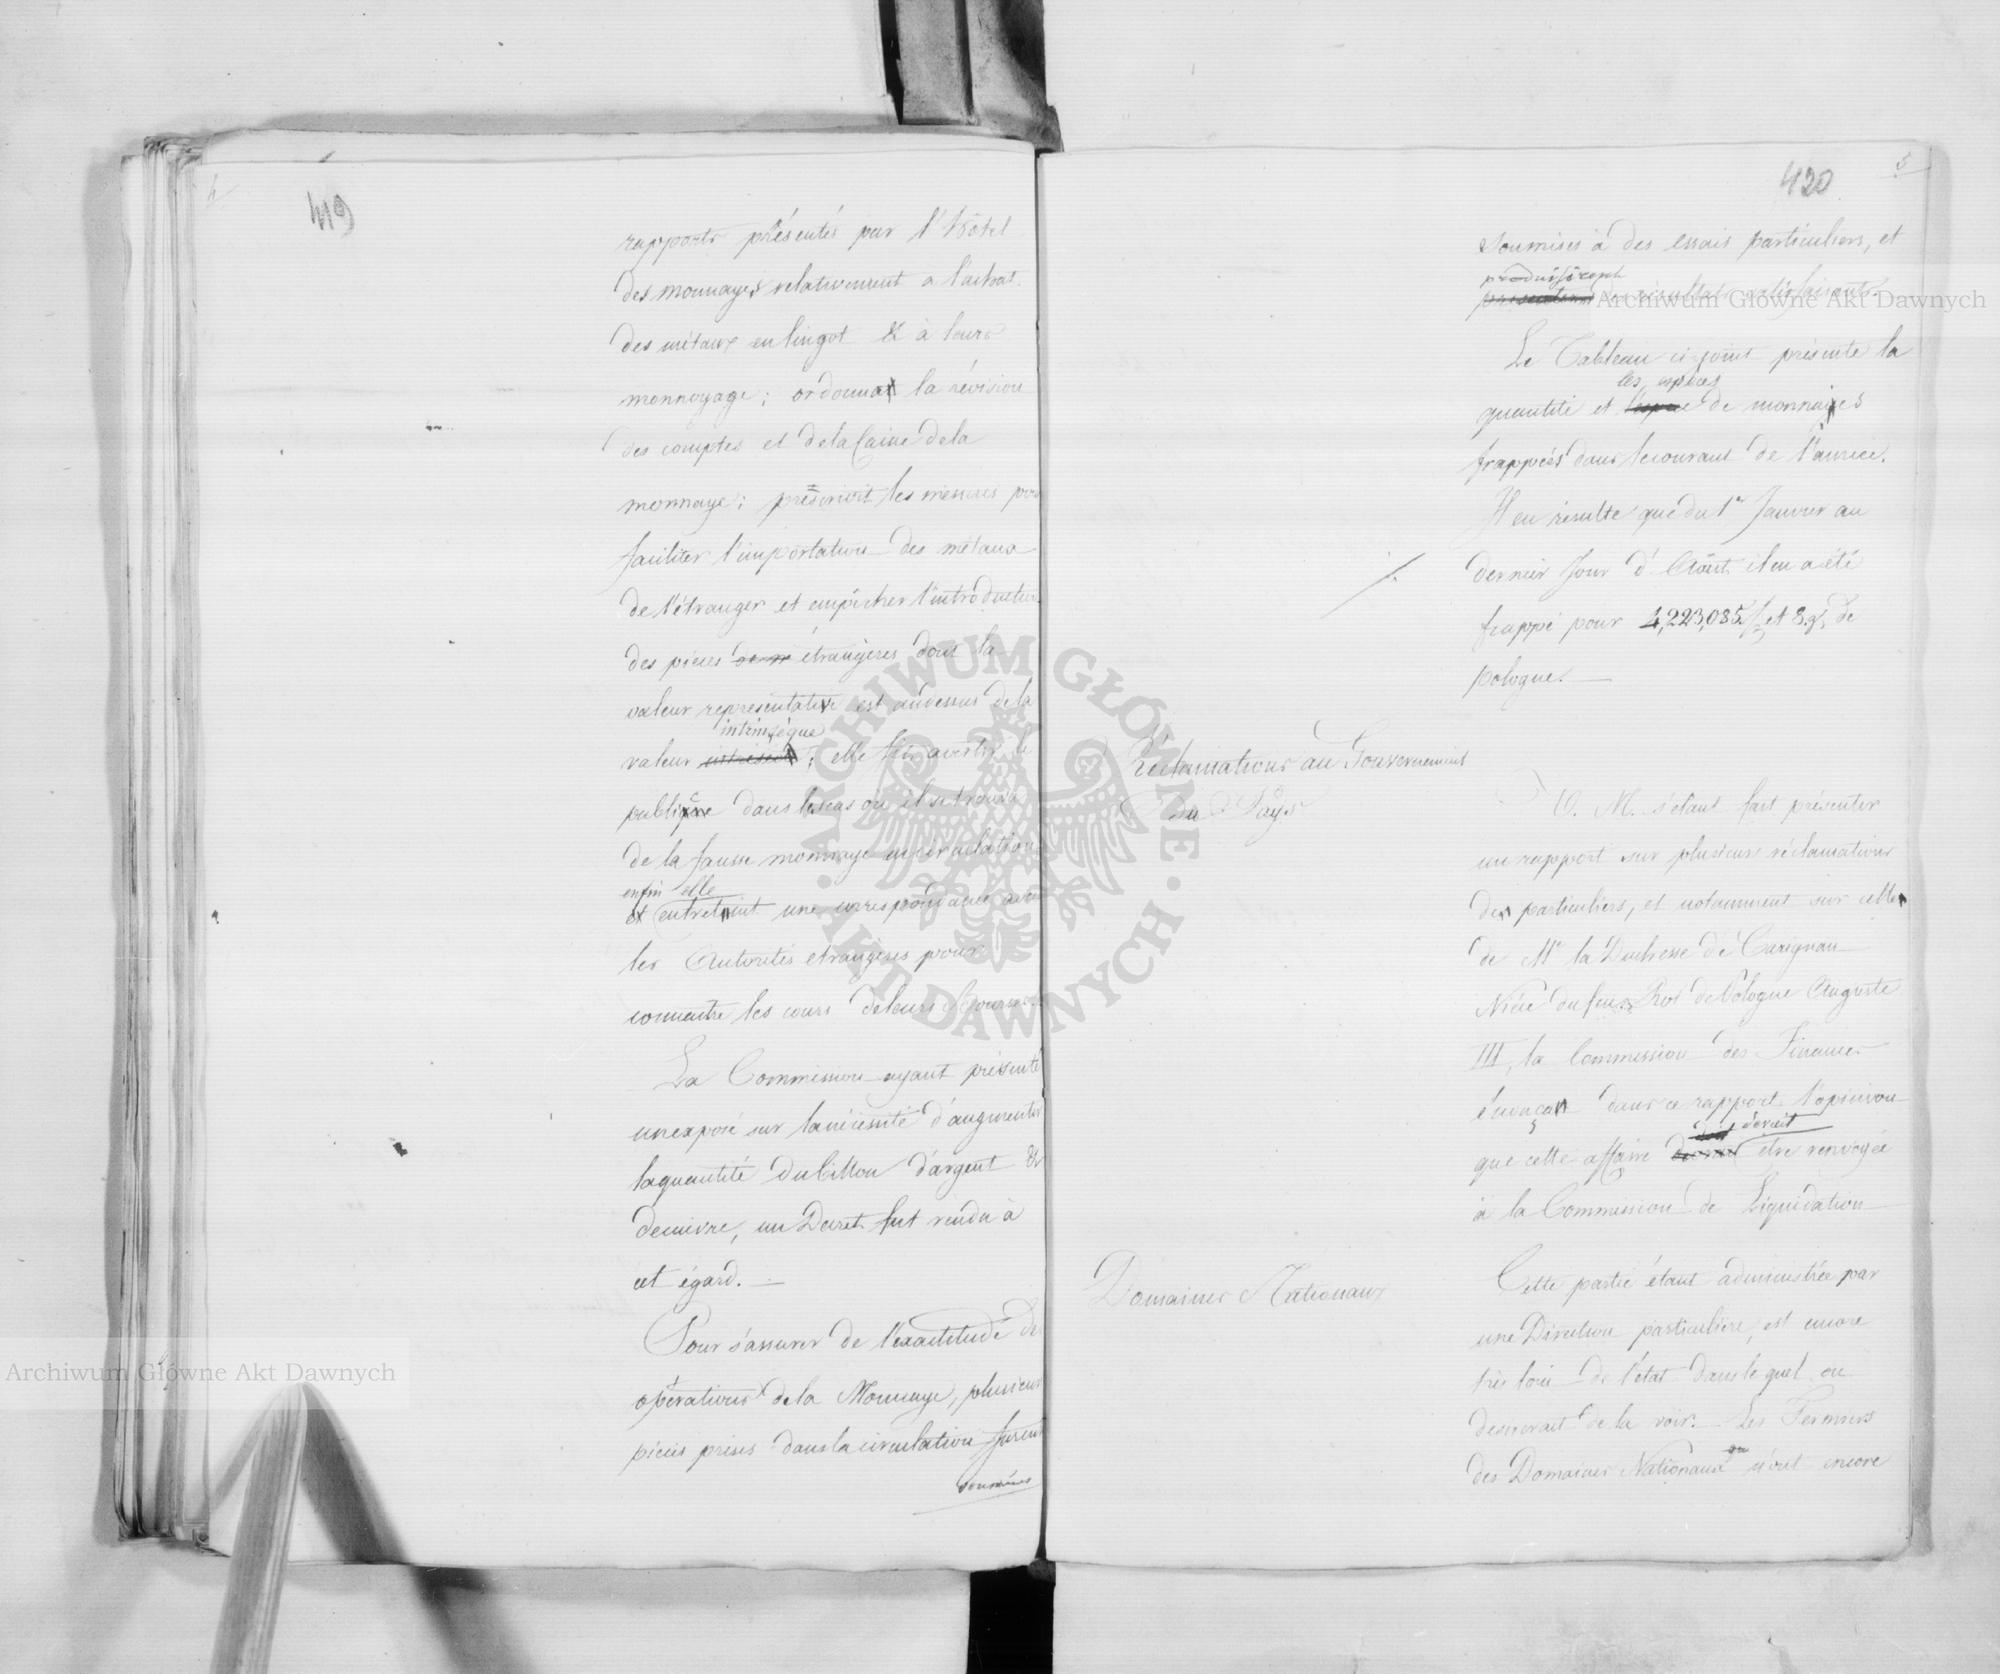 4
419
rapports présentés par l'Hôtel
des monnayes relativement a l'achat
des métaux en lingot & à leurs
monnoyage; ordonna la révision
des comptes et de la Caisse de la
monnaye; prescrivit les mesures pour
faciliter l'importation des métaux
de l'étranger et empêcher l'introduction
des pièces étrangères dont la
valeur representative est audessus de la
intrinsèque
valeur ; elle fit avertir le
public dans le cas où il se trouva
de la fausse monnaye en circulation
enfin elle
et entretint une correspondance avec
les Autorités etrangères pour
connaitre les cours de leurs Bourses.
La Commission ayant présenté
un exposé sur la nécessité d'augmenter
la quantité du billon d'argent &
de cuivre, un Decret fut rendu à
cet égard. —
Pour s'assurer de l'exactitude des
opérations de la Monnaye, plusieurs
pièces prises dans la circulation furent
soumises
5
420
soumises à des essais particuliers, et
produisirent
des résultats satisfaisants.
Le Tableau ci-joint présente la
les espèces
quantité et de monnaies
frappées dans le courant de l'année.
Il en résulte que du 1er Janvier au
dernier Jour d'Août il en a été
frappé pour 4,223,085 f. et 8 g. de
pologne. —
Réclamations au Gouvernement
du Pays
V. M. s'étant fait présenter
un rapport sur plusieurs réclamations
des particuliers, et notamment sur celle
de Me la Duchesse de Carignan
Nièce du feu Roi de Pologne Auguste
III, la Commission des Finances
énonça dans ce rapport l'opinion
devait
que cette affaire être renvoyée
à la Commission de Liquidation
Domaines Nationaux
Cette partie étant administrée par
une Direction particulière, est encore
très loin de l'état dans lequel on
desirerait de la voir. Les Fermiers
des Domaines Nationaux n'ont encore
Archiwum Główne Akt Dawnych
Archiwum Główne Akt Dawnych
ARCHIWUM GŁÓWNE · AKT DAWNYCH ·